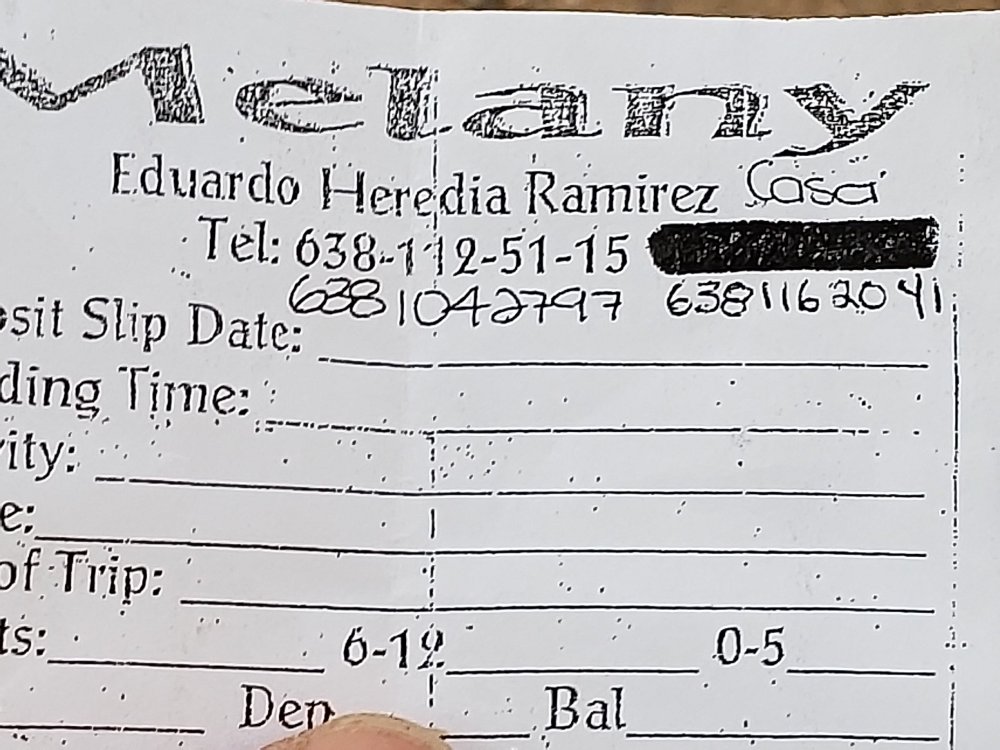 Melany
Eduardo Heredia Ramirez Casa
Tel: 638-112-51-15
6381042797 6381162041
osit Slip Date:
ding Time:
ity:
e:
of Trip:
ts: 6-12 0-5
Dep Bal